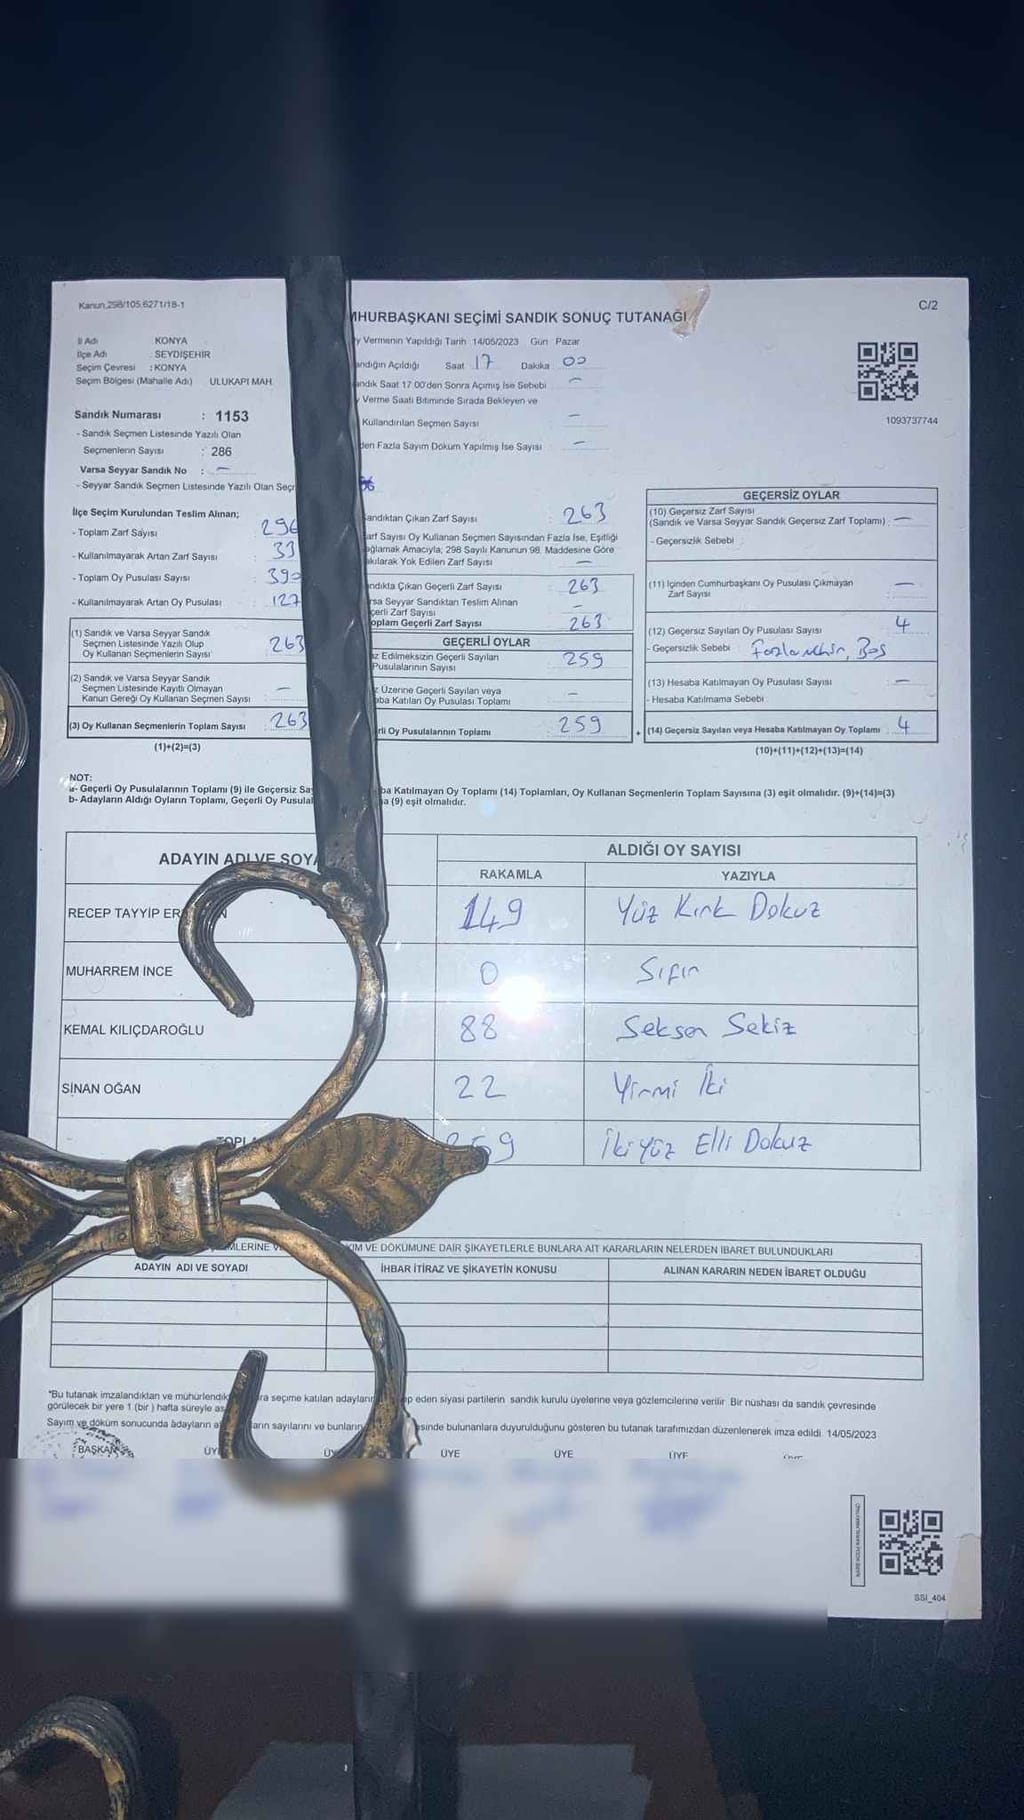 Kanun,298/105,6271/18-1
C/2
MHURBAŞKANI SEÇİMİ SANDIK SONUÇ TUTANAĞI
İl Adı KONYA
İlçe Adı SEYDİŞEHİR
Seçim Çevresi : KONYA
Seçim Bölgesi (Mahalle Adı) ULUKAPI MAH
Vermenin Yapıldığı Tarih 14/05/2023 Gün Pazar
andığın Açıldığı Saat 17 Dakika 00
andık Saat 17 00'den Sonra Açımış İse Sebebi —
Verme Saati Bitiminde Sırada Bekleyen ve
Kullandırılan Seçmen Sayısı —
den Fazla Sayım Döküm Yapılmış İse Sayısı —
1093737744
Sandık Numarası : 1153
- Sandık Seçmen Listesinde Yazılı Olan
Seçmenlerin Sayısı : 286
Varsa Seyyar Sandık No : —
- Seyyar Sandık Seçmen Listesinde Yazılı Olan Seçr
İlçe Seçim Kurulundan Teslim Alınan;
- Toplam Zarf Sayısı 296
- Kullanılmayarak Artan Zarf Sayısı 33
- Toplam Oy Pusulası Sayısı 390
- Kullanılmayarak Artan Oy Pusulası 127
(1) Sandık ve Varsa Seyyar Sandık
Seçmen Listesinde Yazılı Olup
Oy Kullanan Seçmenlerin Sayısı 263
(2) Sandık ve Varsa Seyyar Sandık
Seçmen Listesinde Kayıtlı Olmayan
Kanun Gereği Oy Kullanan Seçmen Sayısı —
(3) Oy Kullanan Seçmenlerin Toplam Sayısı 263
(1)+(2)=(3)
andıktan Çıkan Zarf Sayısı : 263
arf Sayısı Oy Kullanan Seçmen Sayısından Fazla İse, Eşitliği
ağlamak Amacıyla; 298 Sayılı Kanunun 98. Maddesine Göre
akılarak Yok Edilen Zarf Sayısı —
andıkta Çıkan Geçerli Zarf Sayısı 263
rsa Seyyar Sandıktan Teslim Alınan
çerli Zarf Sayısı —
oplam Geçerli Zarf Sayısı 263
GEÇERLİ OYLAR
z Edilmeksizin Geçerli Sayılan
Pusulalarının Sayısı 259
z Üzerine Geçerli Sayılan veya
aba Katılan Oy Pusulası Toplamı —
rli Oy Pusulalarının Toplamı 259
GEÇERSİZ OYLAR
(10) Geçersiz Zarf Sayısı
(Sandık ve Varsa Seyyar Sandık Geçersiz Zarf Toplamı) : —
- Geçersizlik Sebebi :
(11) İçinden Cumhurbaşkanı Oy Pusulası Çıkmayan
Zarf Sayısı —
(12) Geçersiz Sayılan Oy Pusulası Sayısı 4
- Geçersizlik Sebebi : Fazla mühür, Boş
(13) Hesaba Katılmayan Oy Pusulası Sayısı —
- Hesaba Katılmama Sebebi
+ (14) Geçersiz Sayılan veya Hesaba Katılmayan Oy Toplamı 4
(10)+(11)+(12)+(13)=(14)
NOT:
a- Geçerli Oy Pusulalarının Toplamı (9) ile Geçersiz Sa ba Katılmayan Oy Toplamı (14) Toplamları, Oy Kullanan Seçmenlerin Toplam Sayısına (3) eşit olmalıdır. (9)+(14)=(3)
b- Adayların Aldığı Oyların Toplamı, Geçerli Oy Pusulal a (9) eşit olmalıdır.
ADAYIN ADI VE SOYA ALDIĞI OY SAYISI
RAKAMLA YAZIYLA
RECEP TAYYİP ER N 149 Yüz Kırk Dokuz
MUHARREM İNCE 0 Sıfır
KEMAL KILIÇDAROĞLU 88 Seksen Sekiz
SİNAN OĞAN 22 Yirmi İki
TOPLA 259 İki Yüz Elli Dokuz
MLERİNE V YIM VE DÖKÜMÜNE DAİR ŞİKAYETLERLE BUNLARA AİT KARARLARIN NELERDEN İBARET BULUNDUKLARI
ADAYIN ADI VE SOYADI İHBAR İTİRAZ VE ŞİKAYETİN KONUSU ALINAN KARARIN NEDEN İBARET OLDUĞU
*Bu tutanak imzalandıktan ve mühürlendik ra seçime katılan adayların ep eden siyasi partilerin sandık kurulu üyelerine veya gözlemcilerine verilir Bir nüshası da sandık çevresinde
görülecek bir yere 1 (bir) hafta süreyle as
Sayım ve döküm sonucunda adayların a ların sayılarını ve bunların esinde bulunanlara duyurulduğunu gösteren bu tutanak tarafımızdan düzenlenerek imza edildi 14/05/2023
BAŞKAN ÜYE ÜYE ÜYE ÜYE ÜYE
SSI_404